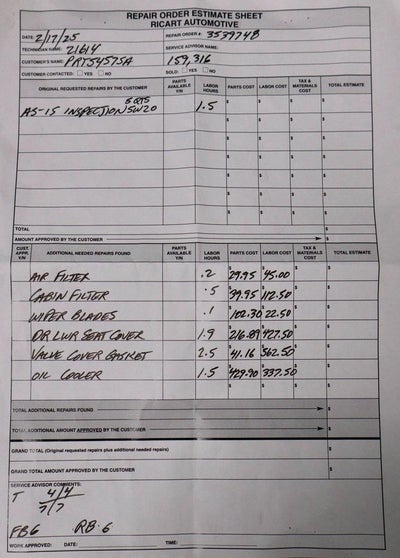 REPAIR ORDER ESTIMATE SHEET
RICART AUTOMOTIVE
DATE: 2/17/25 REPAIR ORDER #: 3539748
TECHNICIAN NAME: 21614 SERVICE ADVISOR NAME:
CUSTOMER'S NAME: PRT54575A 159,316
CUSTOMER CONTACTED: YES NO SOLD: YES NO
ORIGINAL REQUESTED REPAIRS BY THE CUSTOMER PARTS AVAILABLE Y/N LABOR HOURS PARTS COST LABOR COST TAX & MATERIALS COST TOTAL ESTIMATE
5 QTS
AS-15 INSPECTION 5W20 1.5 $ $ $ $
$ $ $ $
$ $ $ $
$ $ $ $
$ $ $ $
$ $ $ $
TOTAL $
AMOUNT APPROVED BY THE CUSTOMER $
CUST. APPR. Y/N ADDITIONAL NEEDED REPAIRS FOUND PARTS AVAILABLE Y/N LABOR HOURS PARTS COST LABOR COST TAX & MATERIALS COST TOTAL ESTIMATE
AIR FILTER .2 $29.95 $45.00 $ $
CABIN FILTER .5 $39.95 $112.50 $ $
WIPER BLADES .1 $102.30 $22.50 $ $
DR LWR SEAT COVER 1.9 $216.89 $427.50 $ $
VALVE COVER GASKET 2.5 $41.16 $562.50 $ $
OIL COOLER 1.5 $429.90 $337.50 $ $
$ $ $ $
TOTAL ADDITIONAL REPAIRS FOUND $
TOTAL ADDITIONAL AMOUNT APPROVED BY THE CUSTOMER $
GRAND TOTAL (Original requested repairs plus additional needed repairs) $
GRAND TOTAL AMOUNT APPROVED BY THE CUSTOMER $
SERVICE ADVISOR COMMENTS:
T 4/4
7/7
FB6 RB 6
WORK APPROVED: DATE: TIME: